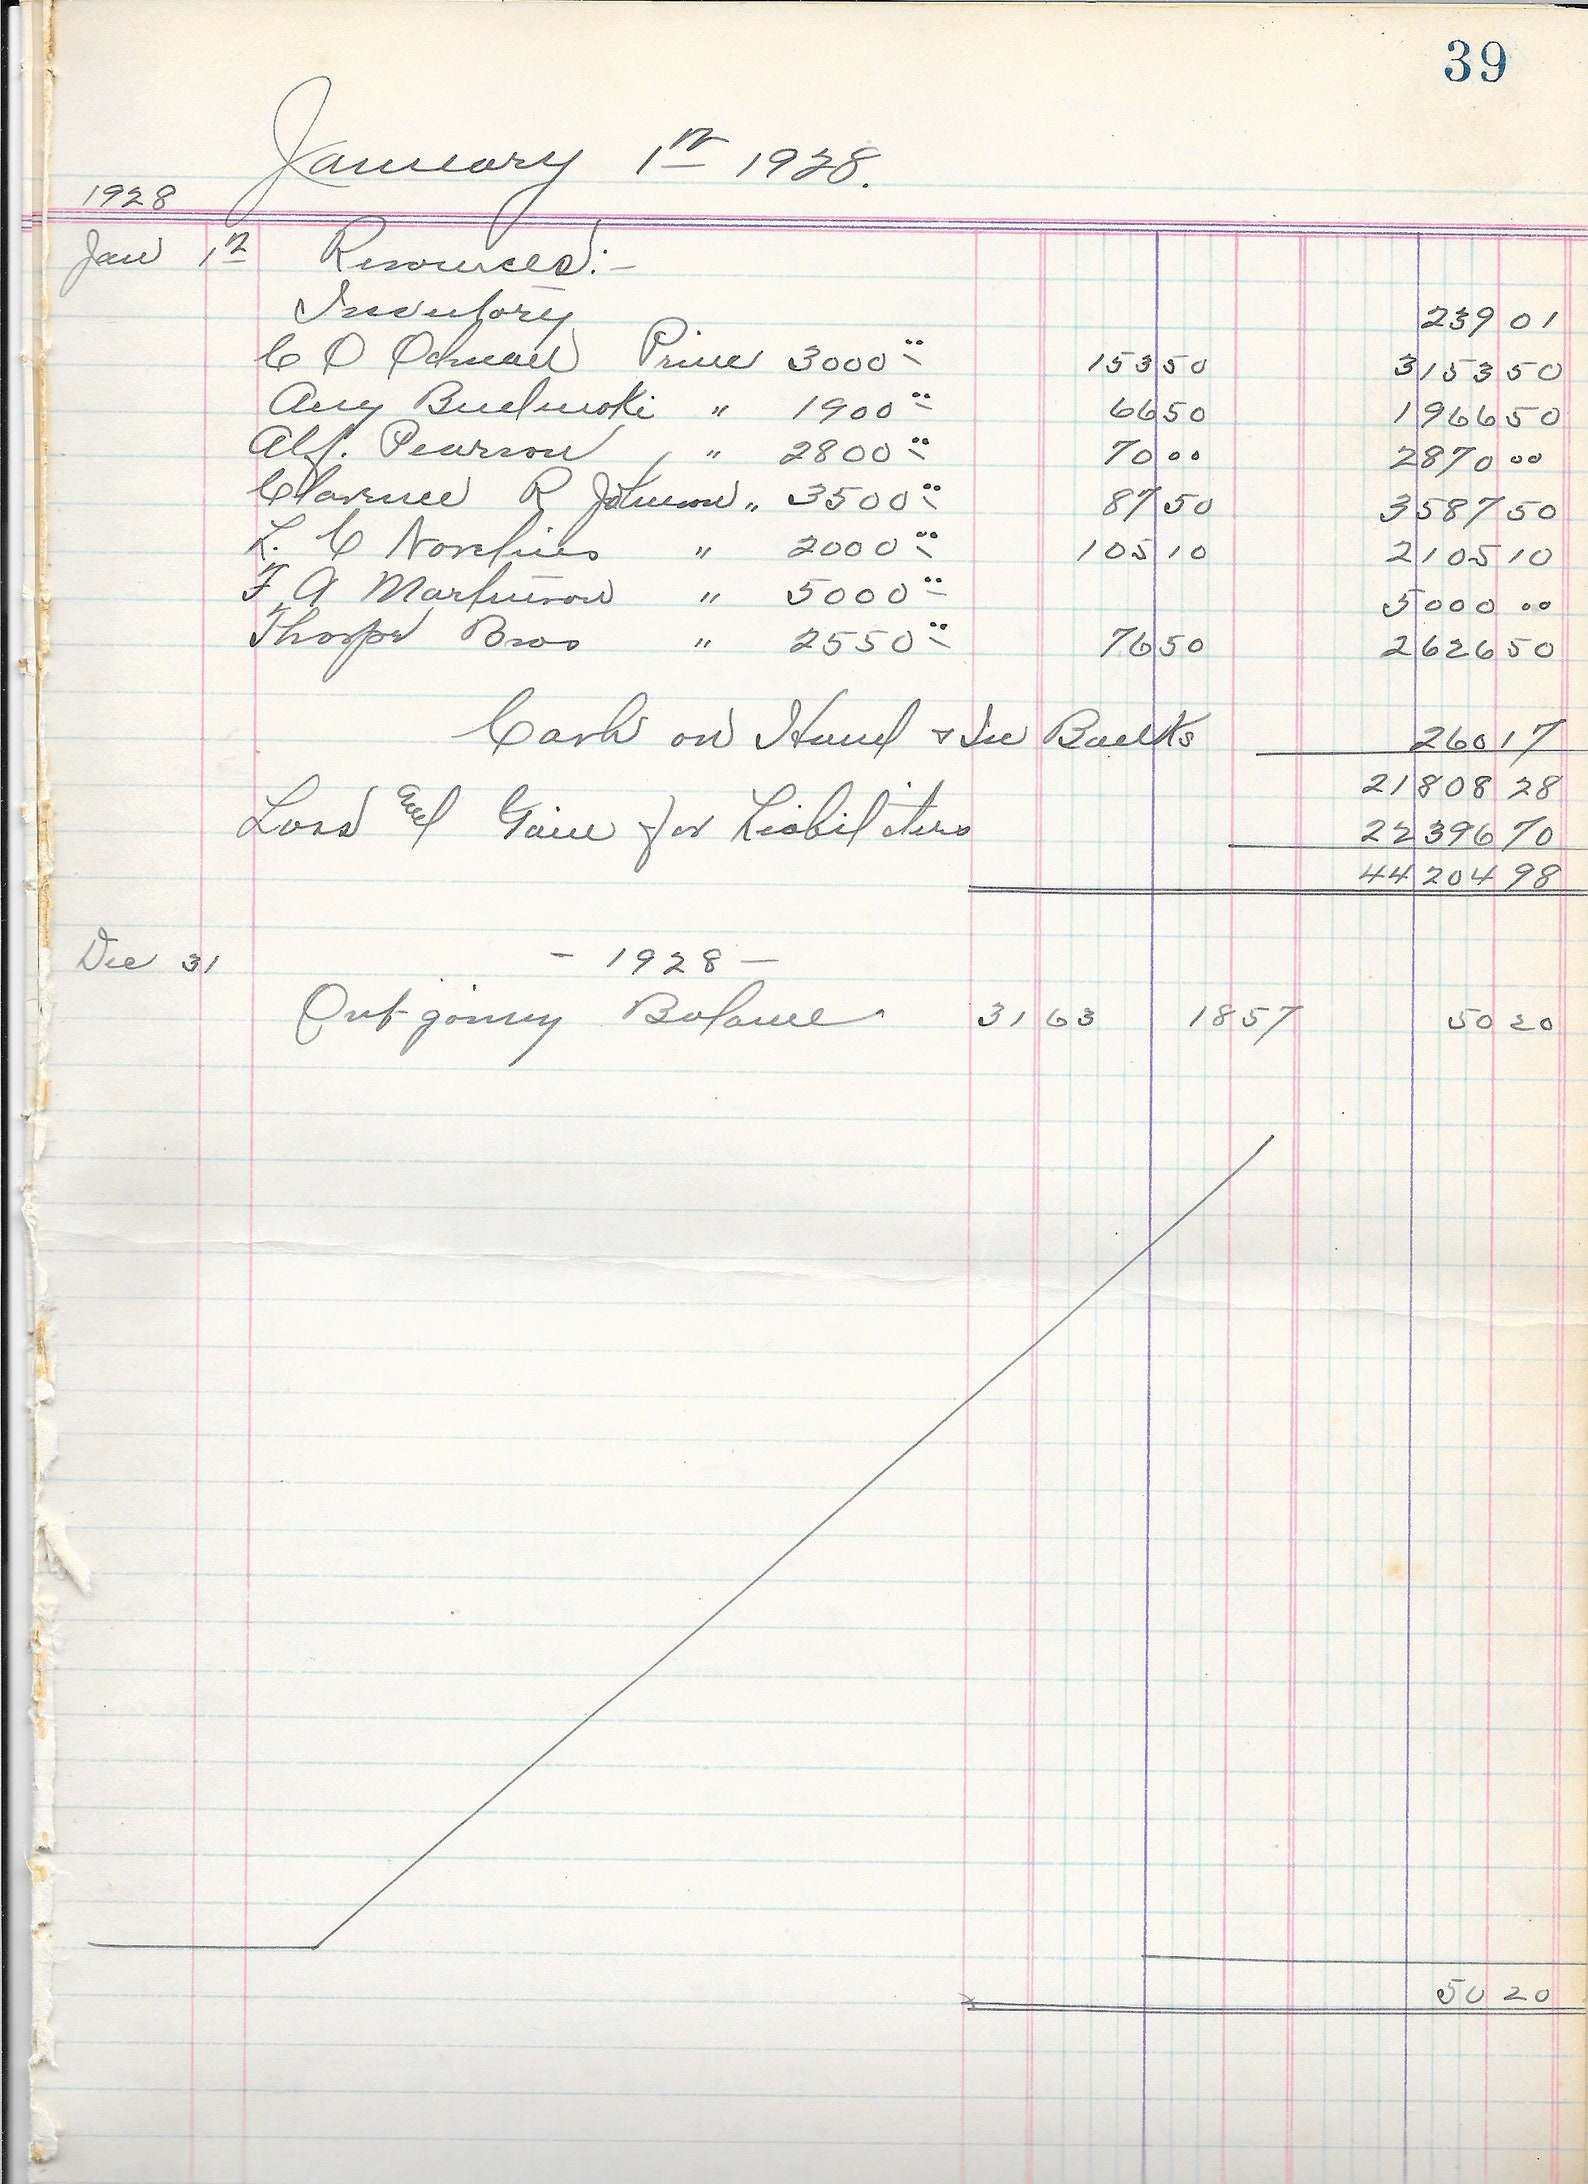 39
January 1st 1928.
1928
Jan 1st Resources:-
Inventory 239 01
C O Prin 3000 00 153 50 3153 50
Aug " 1900 00 66 50 1966 50
Alf. Pearson " 2800 00 70 00 2870 00
Clarence R Johnson " 3500 00 87 50 3587 50
L. C " 2000 00 105 10 2105 10
F A Martinson " 5000 00 5000 00
Thorpe Bros " 2550 00 76 50 2626 50
Cash on Hand & In Banks 260 17
21808 28
Loss and Gain for Liabilities 22396 70
44204 98
Dec 31 - 1928 -
Outgoing Balance 31 63 18 57 50 20
50 20